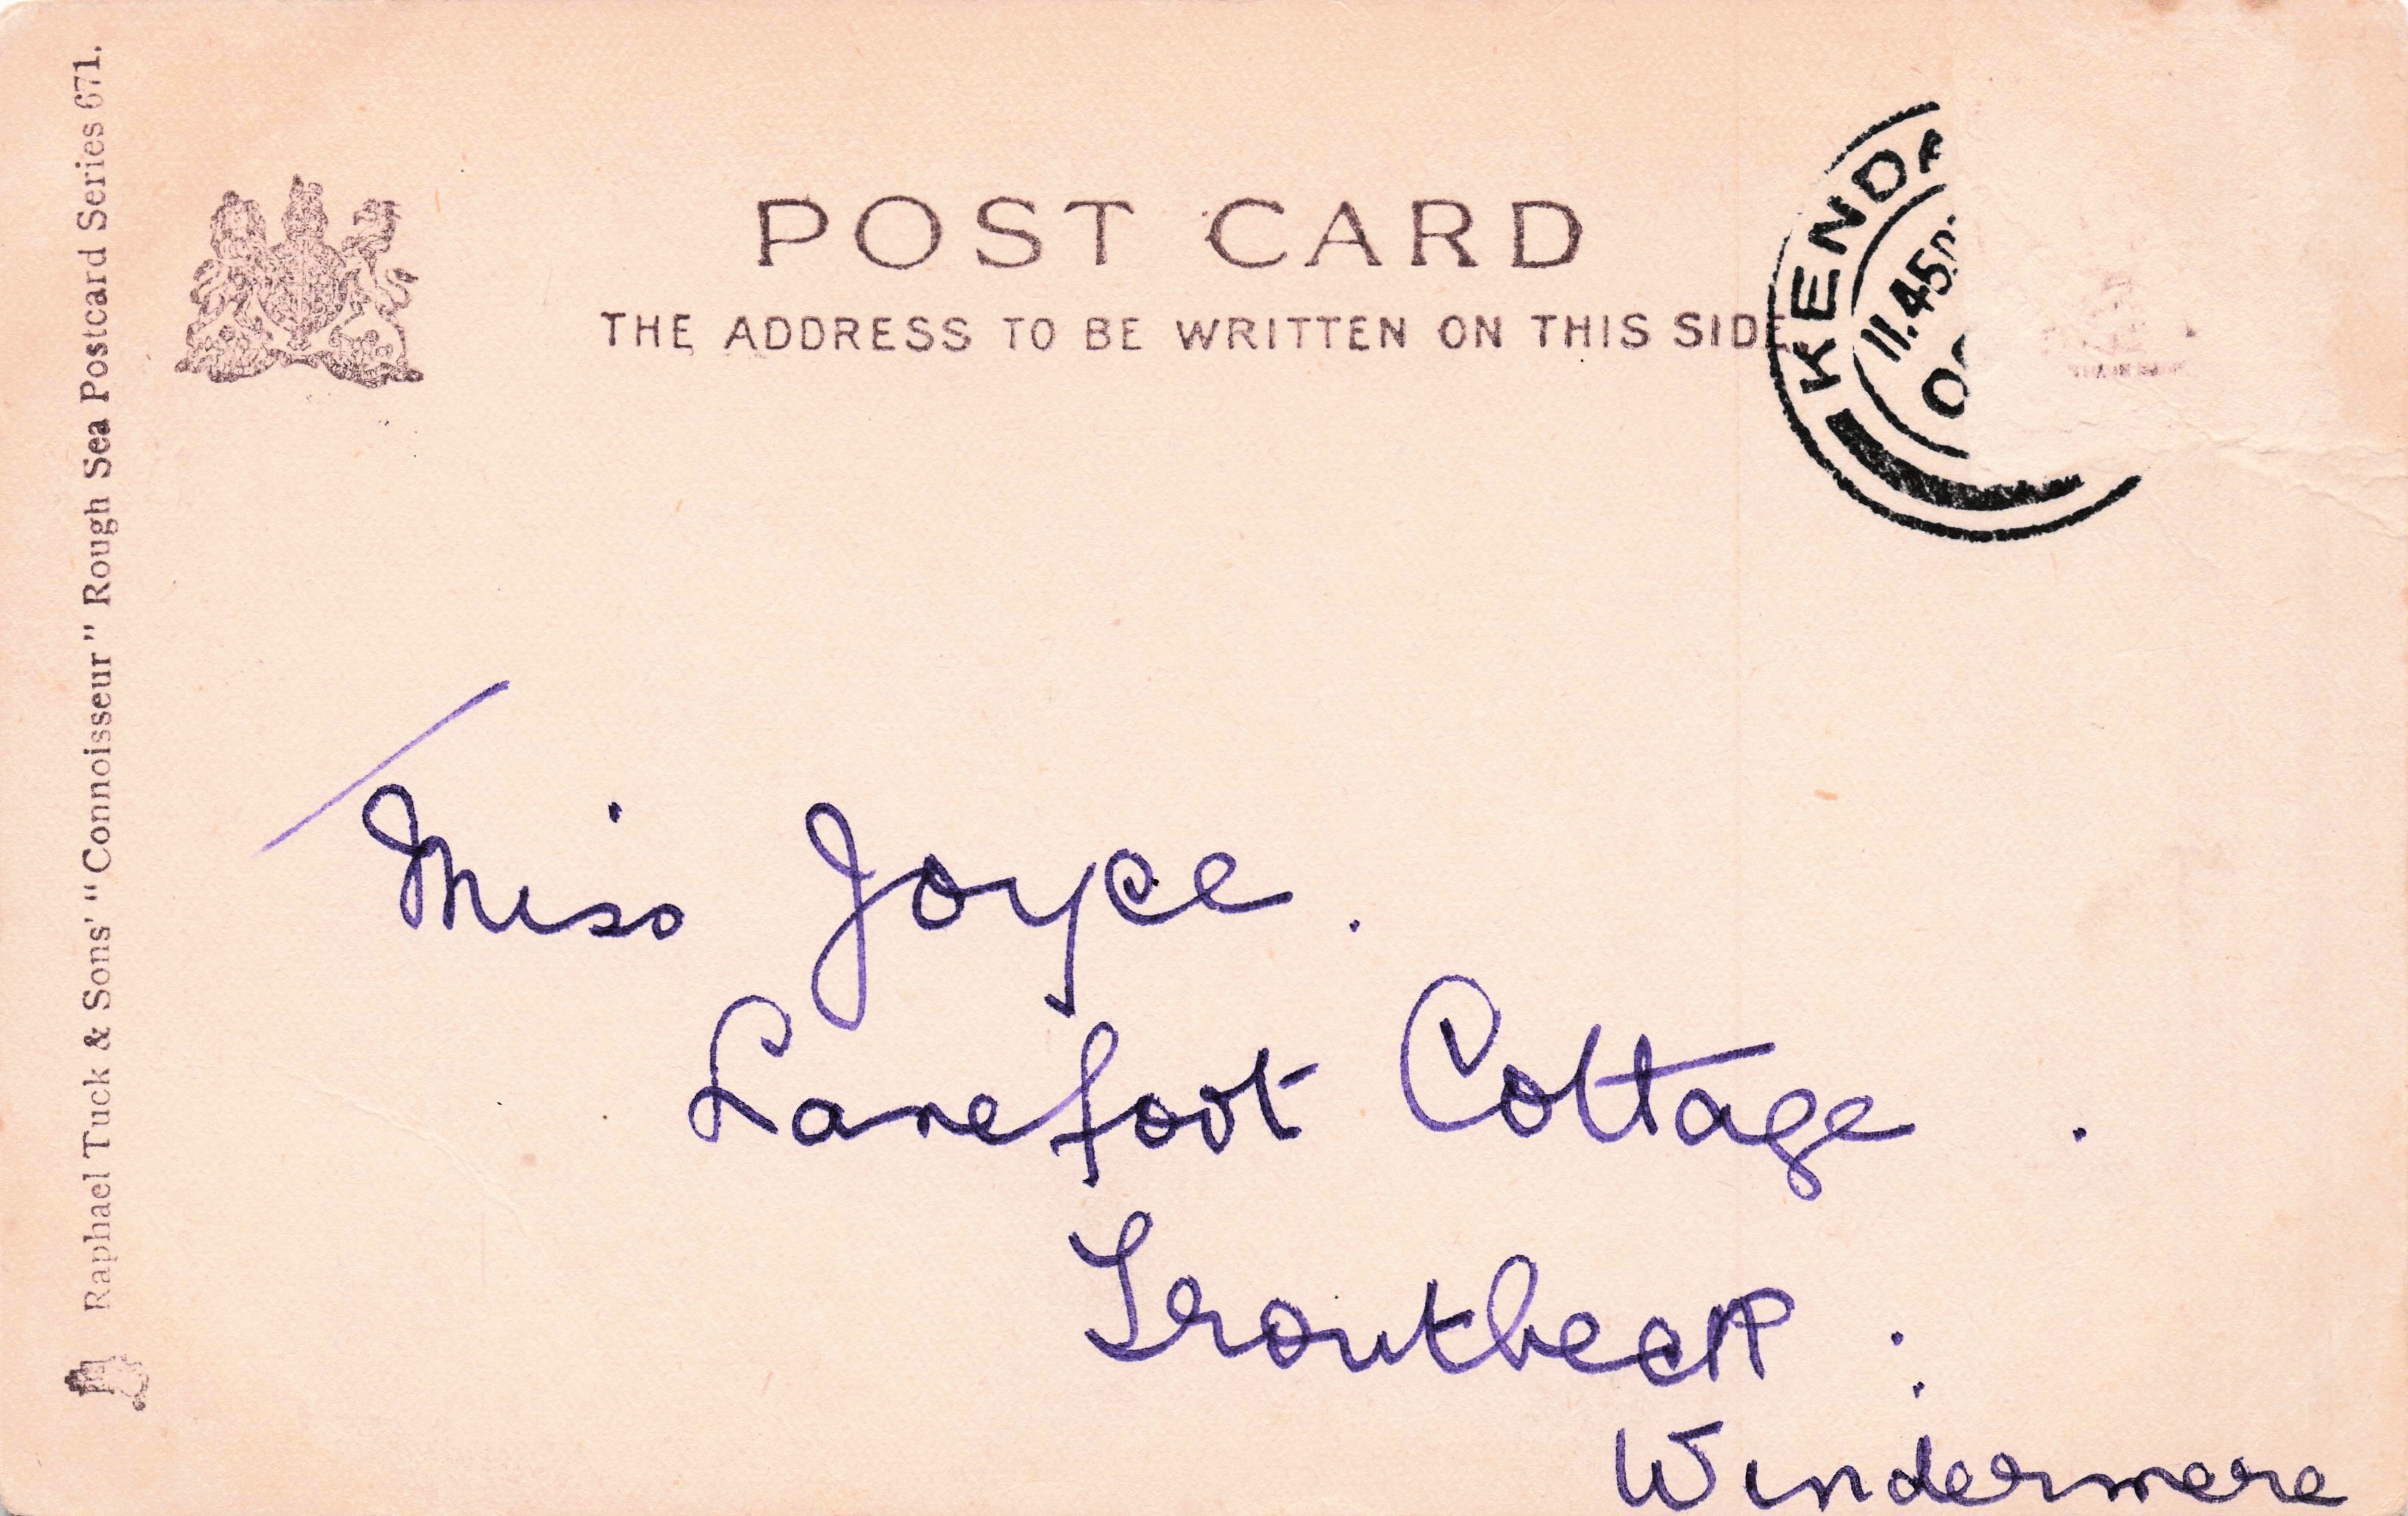 Raphael Tuck & Sons' "Connoisseur" Rough Sea Postcard Series 671.
POST CARD
THE ADDRESS TO BE WRITTEN ON THIS SIDE
KENDA
11.45
Miss Joyce.
Lanefoot Cottage.
Troutbeck.
Windermere